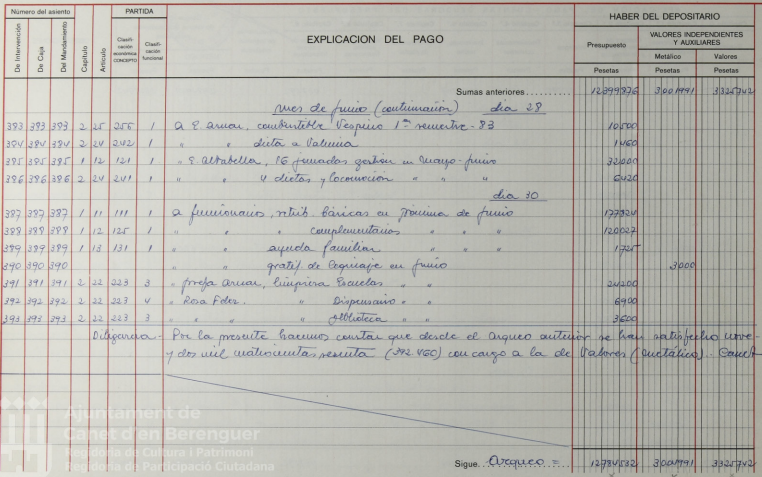 Número del asiento PARTIDA EXPLICACION DEL PAGO HABER DEL DEPOSITARIO
De Intervención De Caja Del Mandamiento Capítulo Artículo Clasificación económica CONCEPTO Clasificación funcional Presupuesto VALORES INDEPENDIENTES Y AUXILIARES
Metálico Valores
Pesetas Pesetas Pesetas
Sumas anteriores 12399876 3001991 3325742
mes de junio (continuación) dia 28
383 383 383 2 25 256 1 a E. Arnar, combustible Vespino 1er semestre - 83 10500
384 384 384 2 24 242 1 " " dieta a Valencia 1460
385 385 385 1 12 121 1 " E. Altabella, 16 jornadas gestión en Mayo-junio 32000
386 386 386 2 24 241 1 " " 4 dietas y locomoción " " " 6420
dia 30
387 387 387 1 11 111 1 a funcionarios, retrib. básicas en nómina de junio 177824
388 388 388 1 12 125 1 " " complementarias " " " 120027
389 389 389 1 13 131 1 " " ayuda familiar " " " 1725
390 390 390 " " gratif. de en junio 3000
391 391 391 2 22 223 3 " Arnar, limpieza Escuelas " " 24200
392 392 392 2 22 223 4 " Rosa Fdez. " Dispensario " " 6900
393 393 393 2 22 223 3 " " " Biblioteca " " 3600
Diligencia - Por la presente hacemos constar que desde el arqueo anterior se han satisfecho
y dos mil cuatrocientas sesenta (392460) con cargo a la de Valores (metálico). - Canet
Ajuntament de
Canet d'en Berenguer
Regidoria de Cultura i Patrimoni
Regidoria de Participació Ciutadana
Sigue Arqueo = 12784532 3001991 3325742